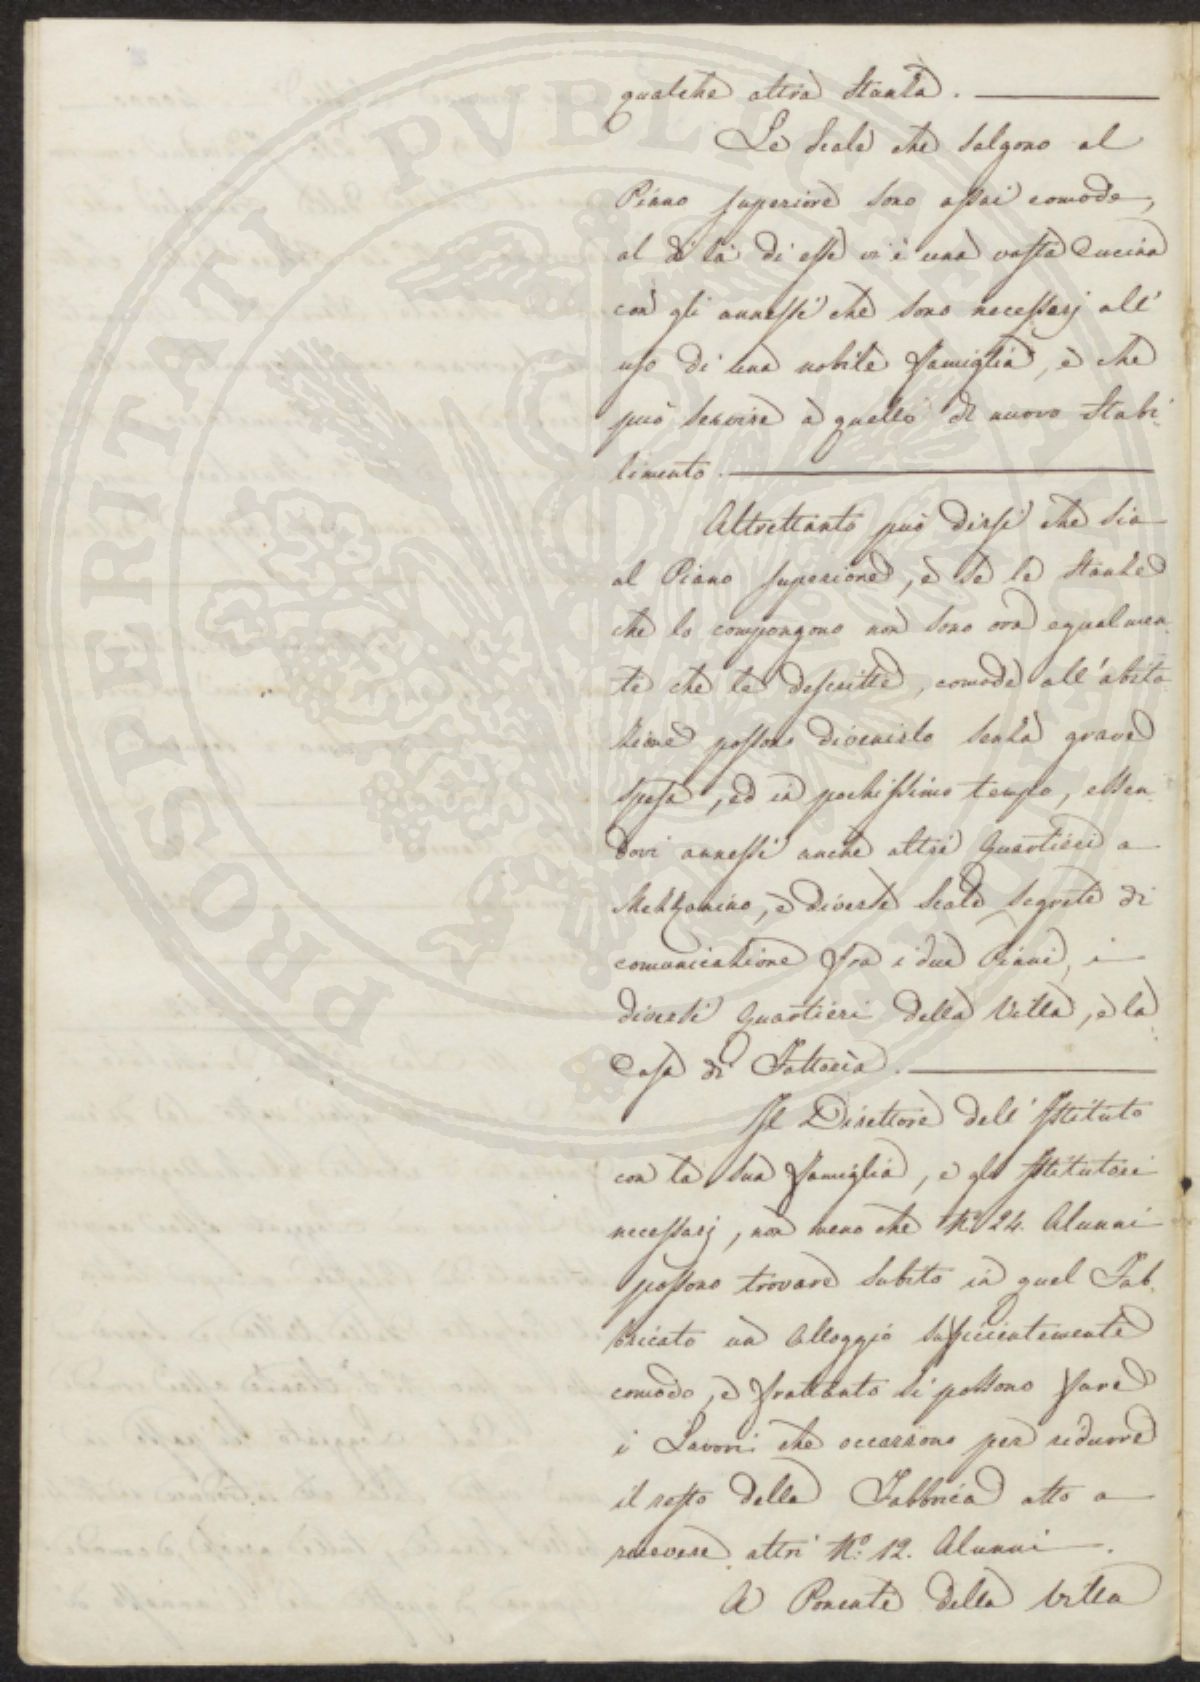 PROSPERITATI PVBLICAE
qualche altra Stanza.
Le Scale che salgono al
Piano superiore sono assai comode,
al di là di esse vi è una vasta Cucina
con gli annessi che sono necessarj all'
uso di una nobile famiglia, e che
può servire a quello di nuovo Stabi-
limento.
Altrettanto può dirsi che sia
al Piano superiore, e se le Stanze
che lo compongono non sono ora egualmen-
te che le descritte, comode all'abita
zione possono divenirlo senza grave
spesa, ed in pochissimo tempo, essen-
dovi annessi anche altri Quartieri a
Mezzanino, e diverse Scale segrete di
comunicazione fra i due Piani, i
diversi Quartieri della Villa, e la
Casa di Fattoria.
Il Direttore dell'Istituto
con la sua famiglia, e gli Istitutori
necessarj, non meno che N.º 24. Alunni
possono trovare subito in quel Fab-
bricato un Alloggio sufficientemente
comodo, e frattanto si possono fare
i Lavori che occorrono per ridurre
il resto della Fabbrica atto a
ricevere altri N.º 12. Alunni.
A Ponente della Villa